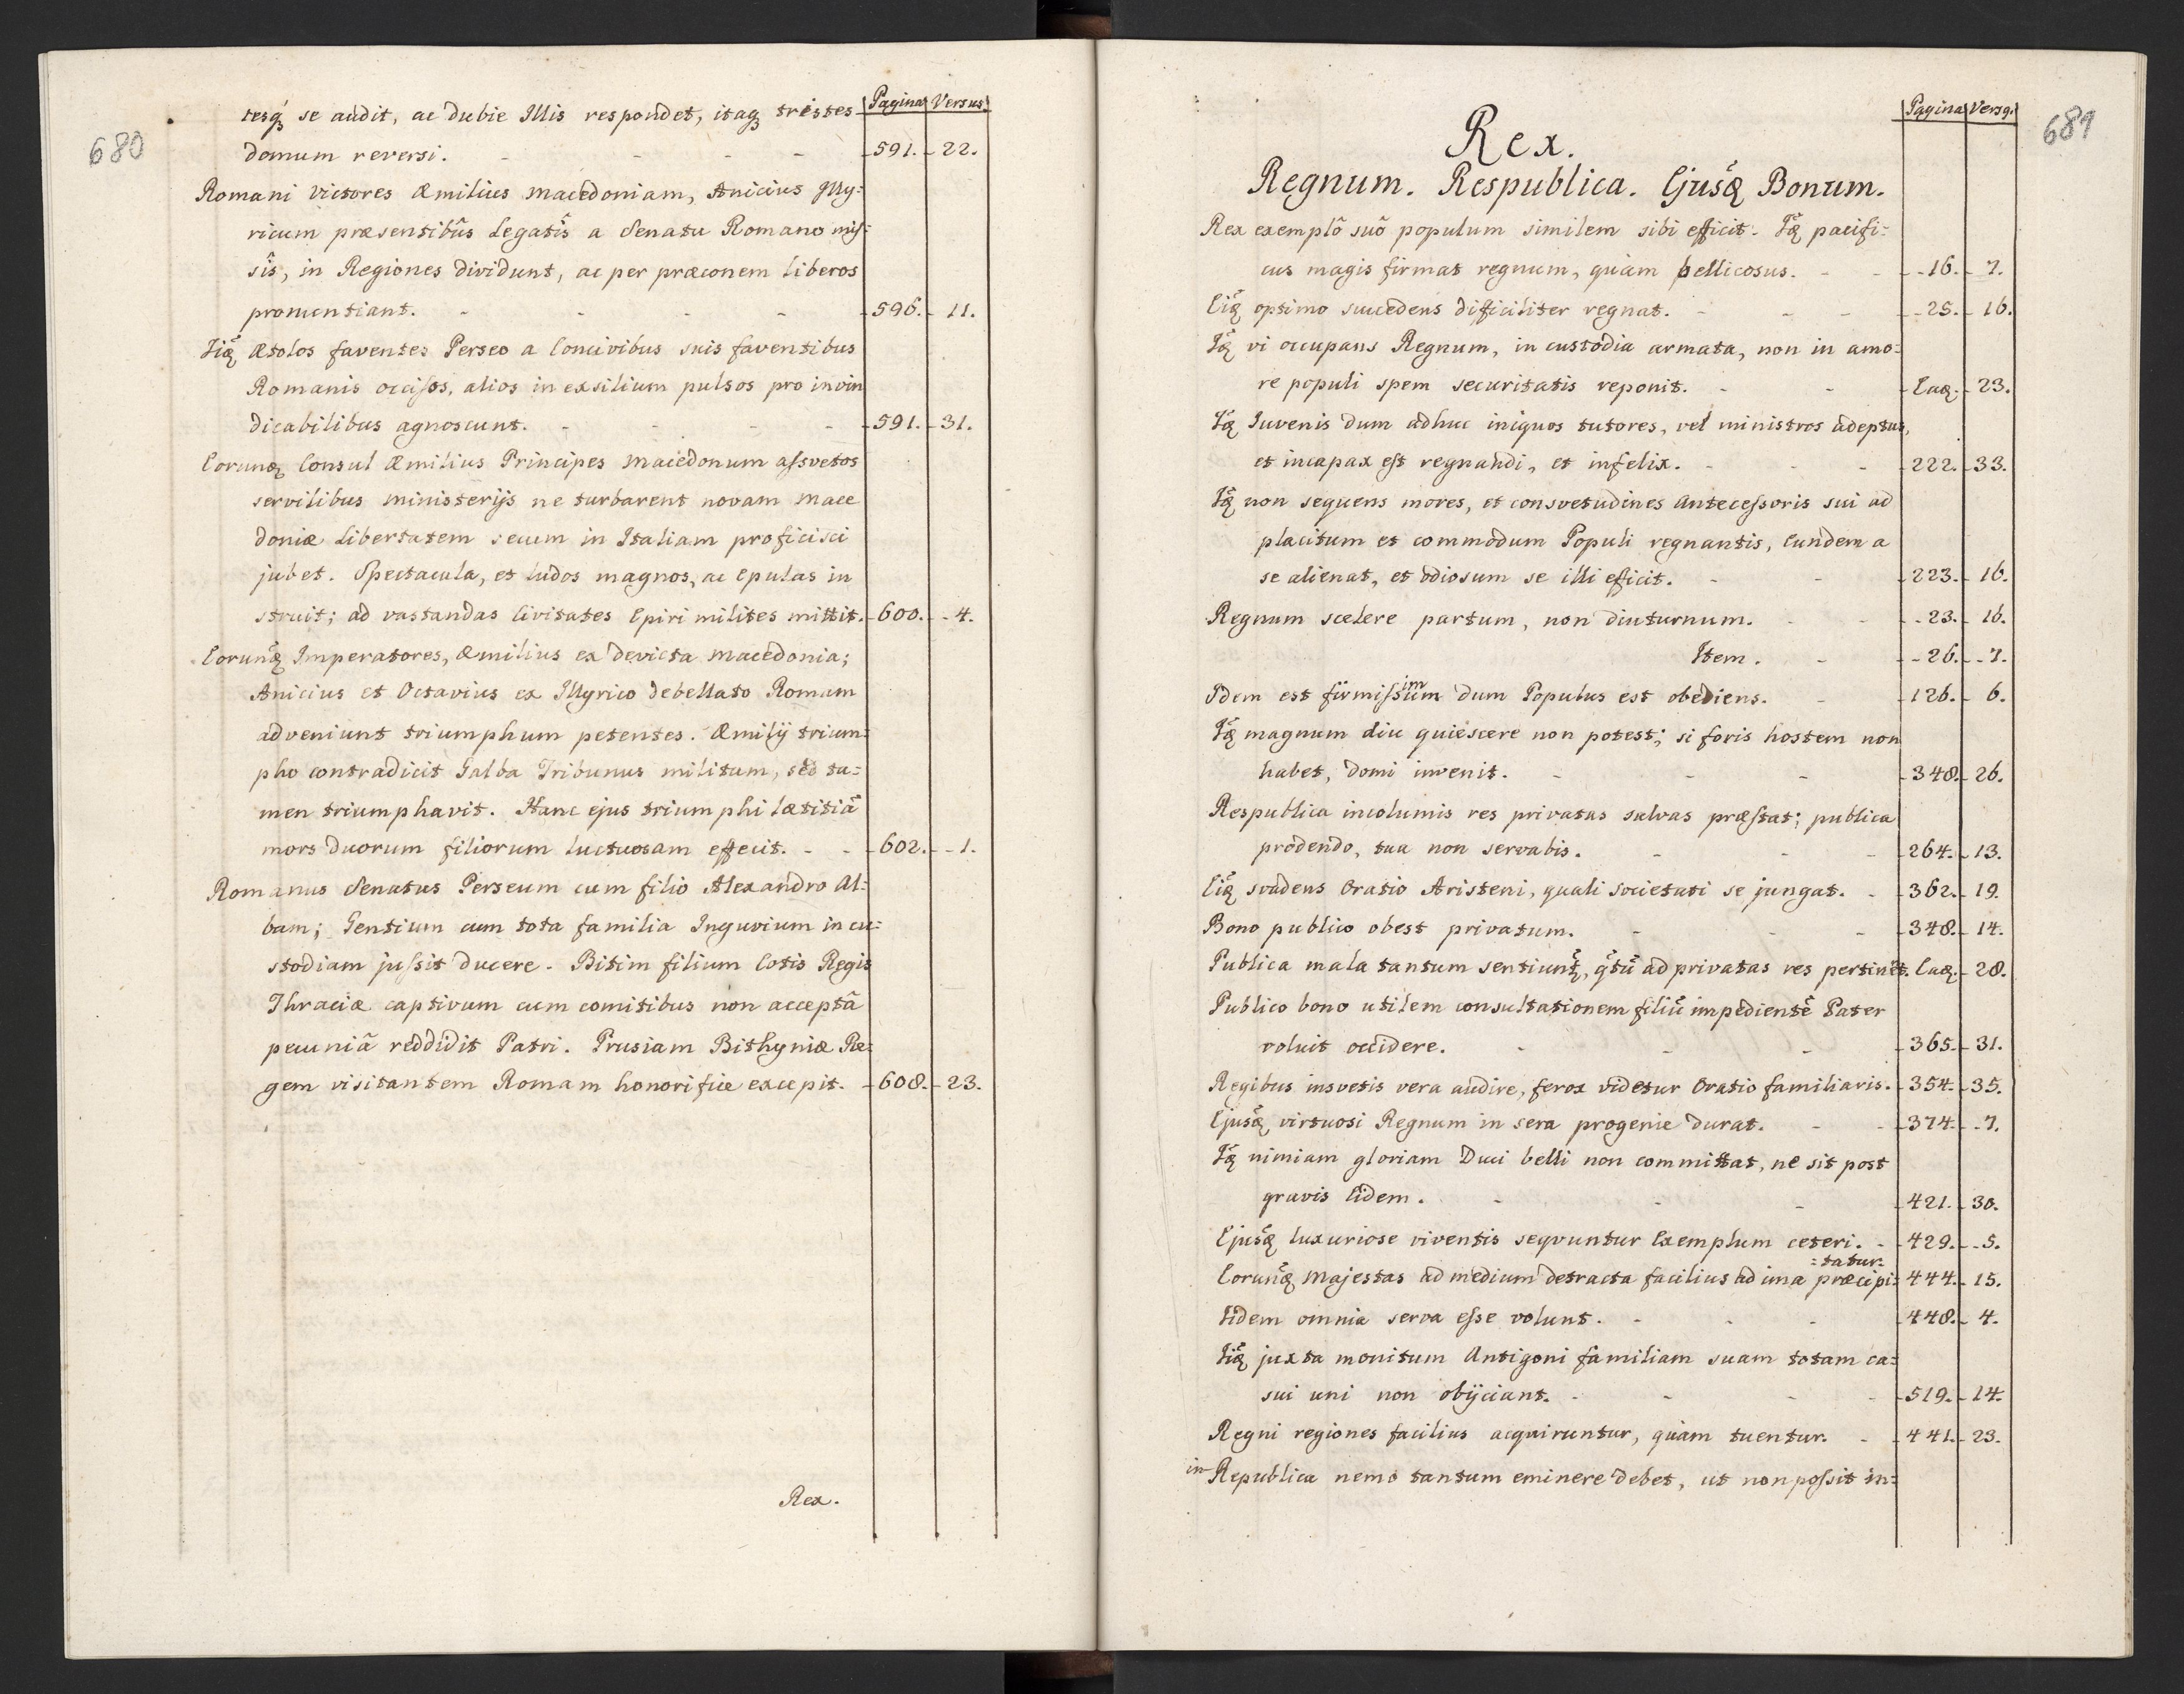 680
Pagina Versus
tesq́ se audit, ac dubie Illis respondet, itaq́ tristes
domum reversi. - - - - 591. - 22.
Romani Victores Æmilius Macedoniam, Anicius Illy=
ricum præsentibûs Legatîs a Senatu Romano mis=
sîs, in Regiones dividunt, ac per præconem liberos
pronuntiant. - - - - 596. - 11.
Iiq́ Ætolos faventes Perseo a Concivibus suis faventibus
Romanis occisos, alios in exsilium pulsos pro invin
dicabilibus agnoscunt. - - - - 591. - 31.
Corunq́ Consul Æmilius Principes Macedonum assvetos
servilibus ministerijs ne turbarent novam Mace
doniæ Libertatem secum in Italiam proficisci
jubet. Spectacula, et ludos magnos, ac Epulas in
struit; ad vastandas Civitates Epiri milites mittit. - 600. - 4.
Eorunq́ Imperatores, Æmilius ex devicta Macedonia;
Anicius et Octavius ex Illyrico debellato Romam
adveniunt triumphum petentes. Æmilij trium=
pho contradicit Galba Tribunus militum, sed ta=
men triumphavit. Hanc ejus triumphi lætitiã
mors duorum filiorum luctuosam effecit. - - 602. - 1.
Romanus Senatus Perseum cum filio Alexandro Al=
bam; Gentium cum tota familia Inguvium in cu=
stodiam jussit ducere. Bitim filium Cotis Regis
Thraciæ captivum cum comitibus non acceptâ
pecuniâ reddidit Patri. Prusiam Bithyniæ Re=
gem visitantem Romam honorifice excepit. - 608. - 23.
Rex.
681
Pagina Versq.
Rex.
Regnum. Respublica. Ejusq́ Bonum.
Rex exemplô suô populum similem sibi efficit. Iq́ pacifi=
cus magis firmat regnum, quàm bellicosus. - - 16. - 7.
Eiq́ optimo succedens difficiliter regnat. - - - 25. - 16.
Iq́ vi occupans Regnum, in custodia armata, non in amo=
re populi spem securitatis reponit. - - Eaq. - 23.
Iq́ Juvenis dum adhuc iniquos tutores, vel ministros adeptus,
et incapax est regnandi, et infelix. - - - 222. - 33.
Iq́ non sequens mores, et consvetudines Antecessoris sui ad
placitum et commodum Populi regnantis, Eundem a
se alienat, et odiosum se illi efficit. - - 223. - 16.
Regnum scelere partum, non diuturnum. - - 23. - 16.
Item. - - 26. - 7.
Idem est firmissimum dum Populus est obediens. - 126. - 6.
Iq́ magnum diu quiescere non potest; si foris hostem non
habet, domi invenit. - - - 348. - 26.
Respublica incolumis res privatas salvas præstat; publica
prodendo, tua non servabis. - - - 264. - 13.
Eiq́ svadens Oratio Aristeni, quali societati se jungat. - 362. - 19.
Bono publico obest privatum. - - - 348. - 14.
Publica mala tantum sentiunt̃, q̃tũ ad privatas res pertinẽt. Eaq. - 28.
Publico bono utilem consultationem filiũ impedientẽ Pater
voluit occidere. - - - 365. - 31.
Regibus insvetis vera audire, ferox videtur Oratio familiaris. - 354. - 35.
Ejusq́ virtuosi Regnum in sera progenie durat. - - 374. - 7.
Iq́ nimiam gloriam Duci belli non committat, ne sit post
gravis Eidem. - - - 421. - 30.
Ejusq́ luxuriose viventis seqvuntur Exemplum ceteri. - 429. - 5.
Eorunq́ Majestas ad medium detracta facilius ad ima præcipi= =tatur. 444. - 15.
Iidem omnia serva esse volunt. - - - 448. - 4.
Iiq́ juxta monitum Antigoni familiam suam totam ca=
sui uni non obijciant. - - - 519. - 14.
Regni regiones facilius acquiruntur, quàm tuentur. - 441. - 23.
in Republica nemo tantum eminere debet, ut non possit in=